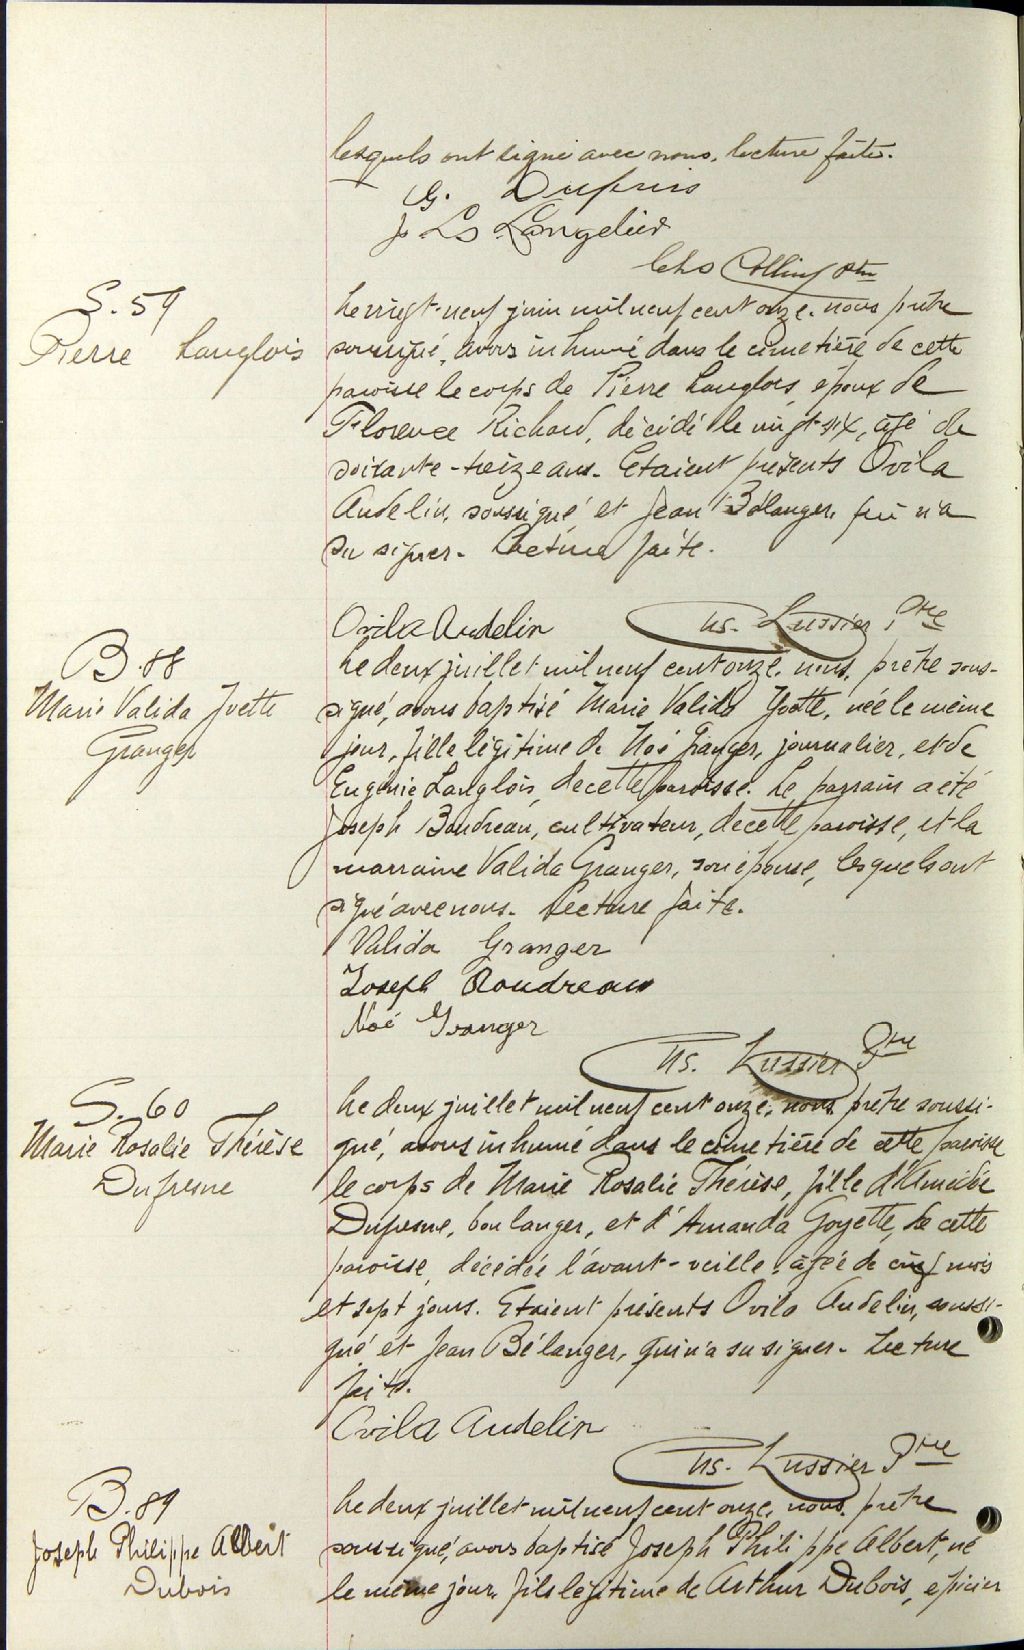 lesquels ont signé avec nous. lecture faite.
G. Dupuis
J Ls Langelier
Chs Collin ptre
S. 59
Pierre Langlois
Le vingt-neuf juin mil neuf cent onze. nous prêtre
soussigné, avons inhumé dans le cimetière de cette
paroisse le corps de Pierre Langlois, époux de
Florence Richard, décédé le vingt-six, âgé de
soixante-treize ans. Etaient présents Ovila
Audelin, soussigné et Jean Bélanger, qui n'a
su signer. Lecture faite.
Ovila Audelin
Us. Lussier Ptre
B. 88
Marie Valida Yvette
Granger
Le deux juillet mil neuf cent onze, nous, prêtre sous-
signé, avons baptisé Marie Valida Yvette, née le même
jour, fille légitime de Noé Granger, journalier, et de
Eugénie Langlois, de cette paroisse. Le parrain a été
Joseph Boudreau, cultivateur, de cette paroisse, et la
marraine Valida Granger, son épouse, lesquels ont
signé avec nous. Lecture faite.
Valida Granger
Joseph Boudreau
Noé Granger
Us. Lussier Ptre
S. 60
Marie Rosalie Thérèse
Dufresne
Le deux juillet mil neuf cent onze, nous prêtre soussi-
gné, avons inhumé dans le cimetière de cette paroisse
le corps de Marie Rosalie Thérèse, fille d'Amédée
Dufresne, boulanger, et d'Amanda Goyette, de cette
paroisse, décédée l'avant-veille, âgée de cinq mois
et sept jours. Etaient présents Ovila Audelin, soussi-
gné et Jean Bélanger, qui n'a su signer. Lecture
faite.
Ovila Audelin
Us. Lussier Ptre
B. 89
Joseph Philippe Albert
Dubois
Le deux juillet mil neuf cent onze, nous, prêtre
soussigné, avons baptisé Joseph Philippe Albert, né
le même jour, fils légitime de Arthur Dubois, épicier